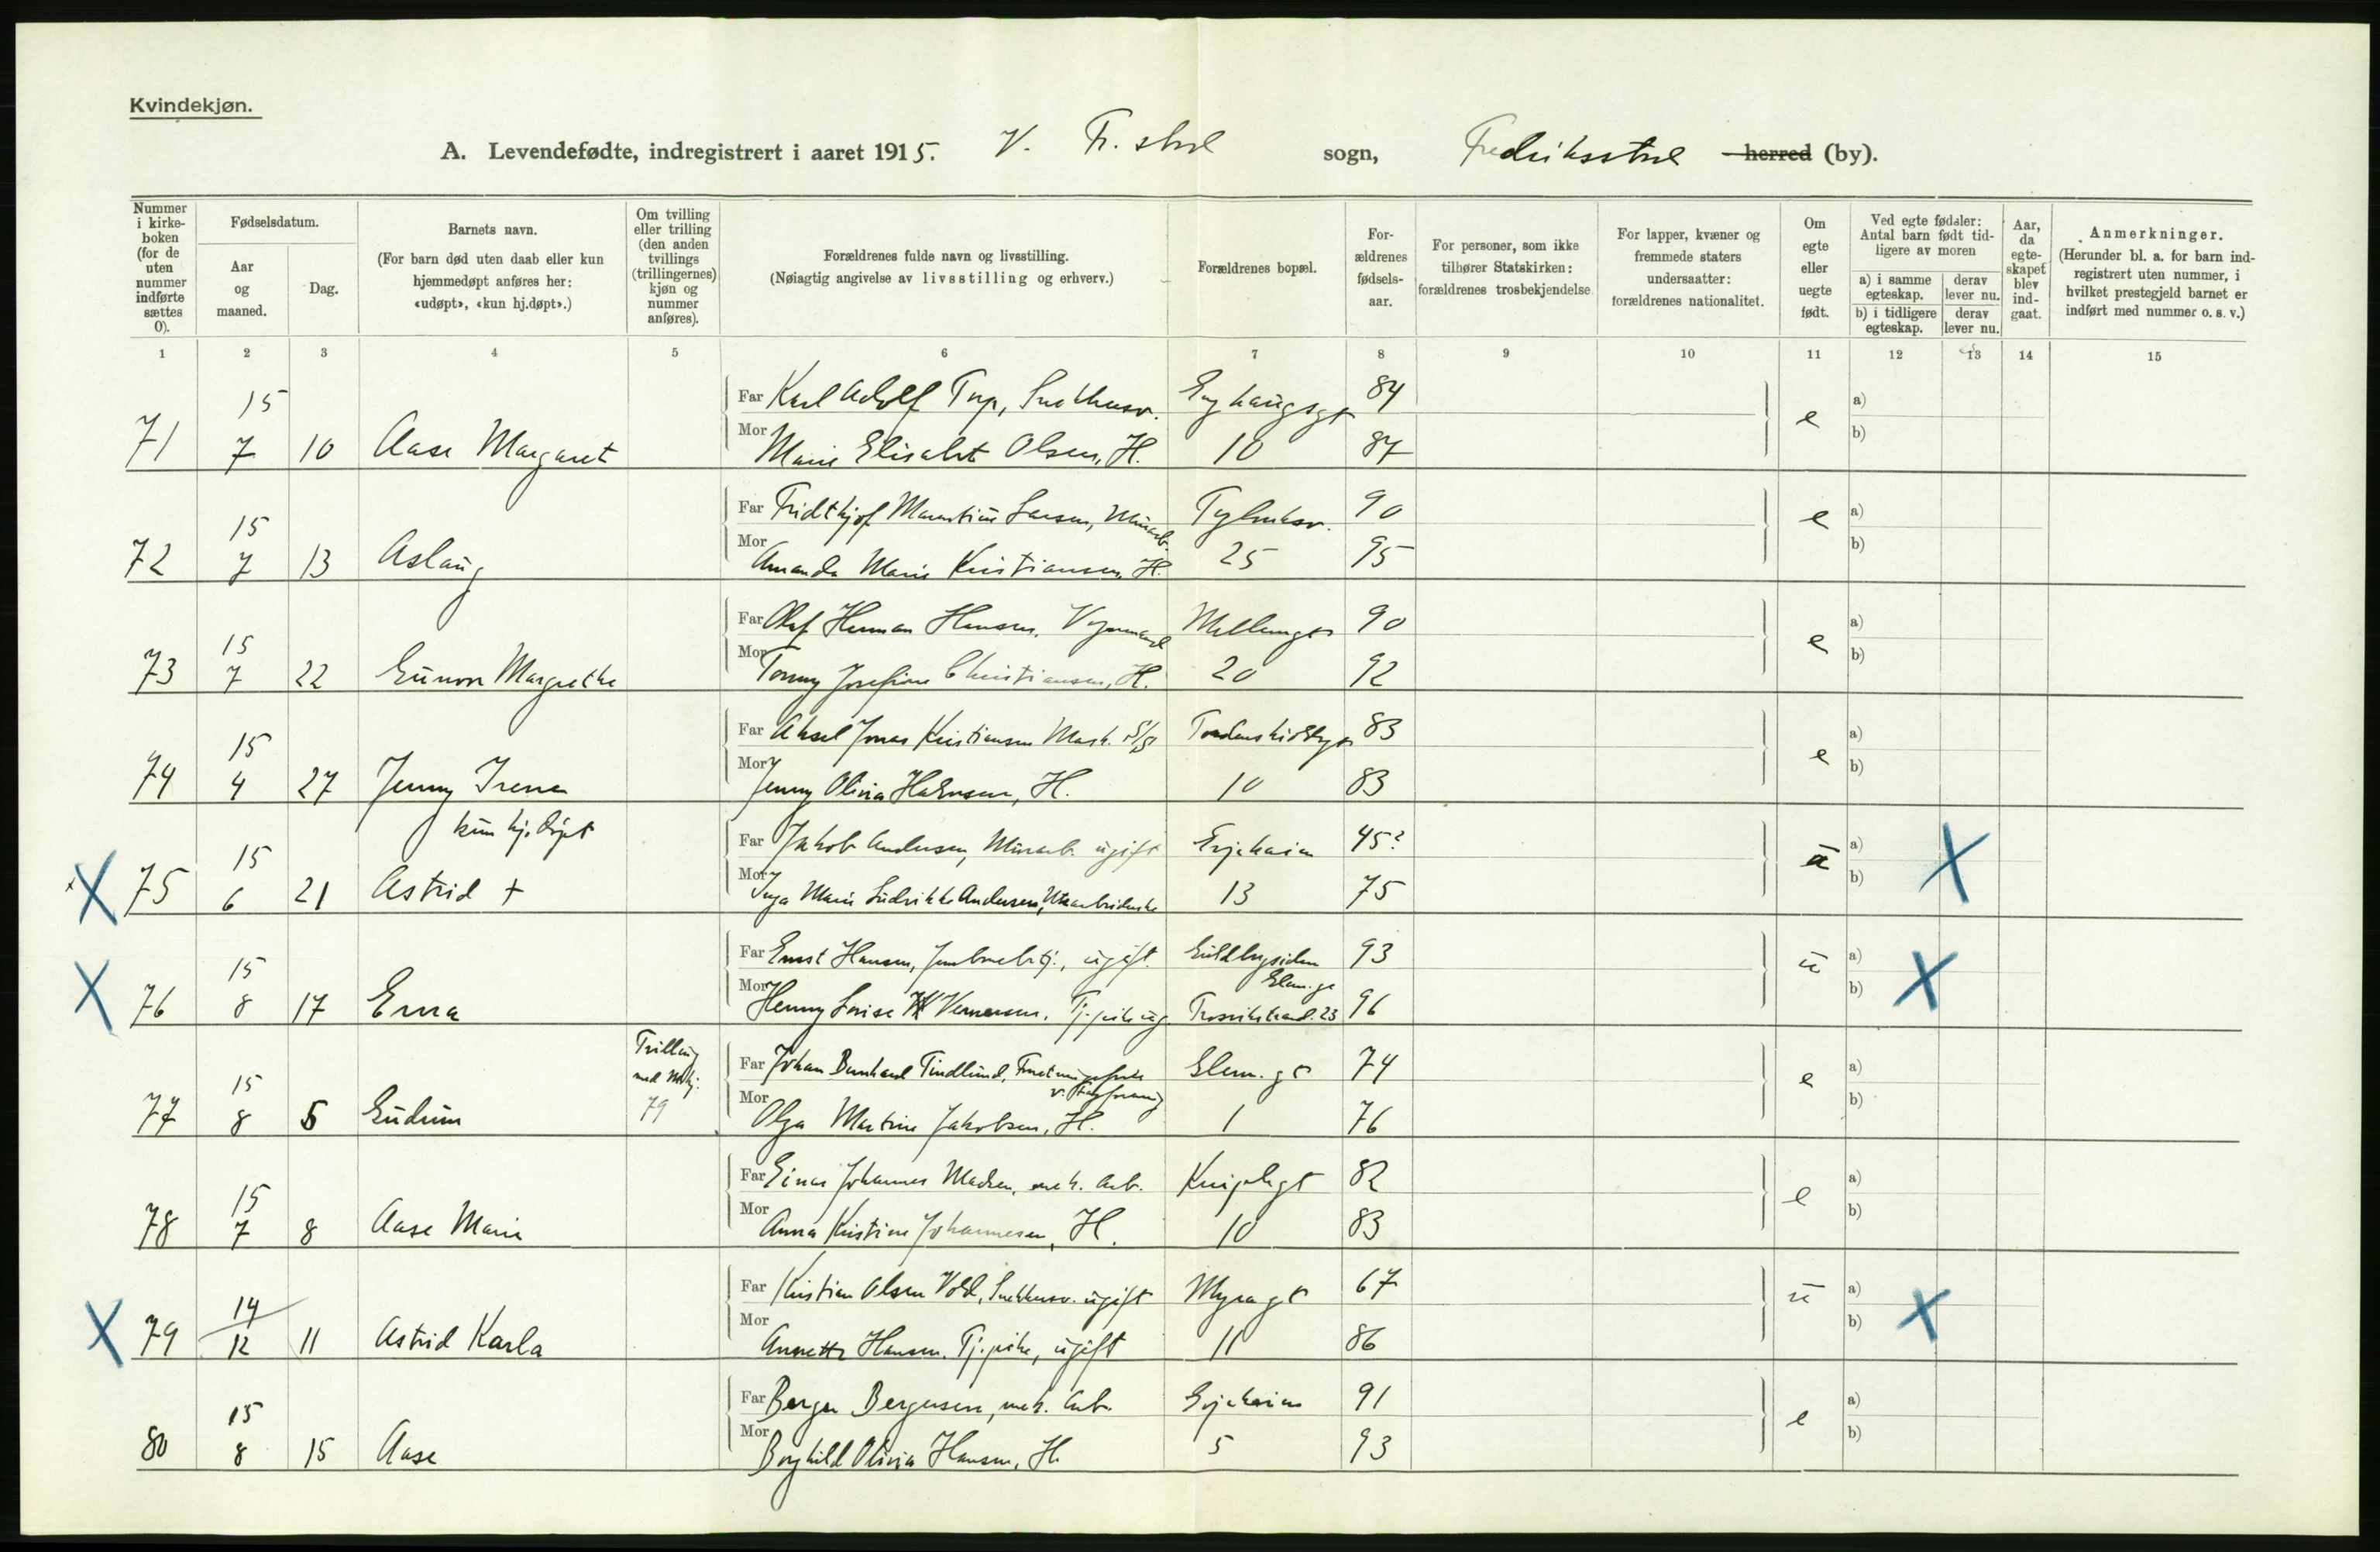 Kvindekjøn.
A. Levendefødte, indregistrert i aaret 1915. V. Fr.stad sogn, Fredriksstad herred (by).
Nummer i kirkeboken (for de uten nummer indførte sættes 0).
Fødselsdatum.
Aar og maaned.
Dag.
Barnets navn.
(For barn død uten daab eller kun hjemmedøpt anføres her: «udøpt», «kun hj.døpt».)
Om tvilling eller trilling (den anden tvillings (trillingernes) kjøn og nummer anføres).
Forældrenes fulde navn og livsstilling.
(Nøiagtig angivelse av livsstilling og erhverv.)
Forældrenes bopæl.
Forældrenes fødselsaar.
For personer, som ikke tilhører Statskirken: forældrenes trosbekjendelse.
For lapper, kvæner og fremmede staters undersaatter: forældrenes nationalitet.
Om egte eller uegte født.
Ved egte fødsler: Antal barn født tidligere av moren
a) i samme egteskap.
derav lever nu.
b) i tidligere egteskap.
derav lever nu.
Aar, da egteskapet blev indgaat.
Anmerkninger.
(Herunder bl. a. for barn indregistrert uten nummer, i hvilket prestegjeld barnet er indført med nummer o. s. v.)
1 2 3 4 5 6 7 8 9 10 11 12 13 14 15
71 15 7 10 Aase Margaret
Far Karl Adolf 84 e a)
Mor Marie Elisabet Olsen, H. 10 87 b)
72 15 7 13 Aslaug
Far Fridthjof Larsen, 90 e a)
Mor Amanda Marie Kristiansen, H. 25 95 b)
73 15 7 22 Gunvor Margrethe
Far Olaf Herman Hansen, 90 e a)
Mor Tonny Josefine Christiansen, H. 20 92 b)
74 15 4 27 Jenny Irene
Far Aksel Jonas Kristiansen Mask. 83 e a)
Mor Jenny Olivia H. 10 83 b)
kun hj.døpt
X 75 15 6 21 Astrid +
Far Jakob Andersen, Murarb. ugift 45? u a) X
Mor Inga Marie Ludvikke Andersen, 13 75 b)
X 76 15 8 17 Erna
Far Ernst Hansen, ugift. Guldbgsiden 93 u a) X
Glem.gt
Mor Henny Lovise Tj.pike ug. 23 96 b)
Trilling
med
79
77 15 8 5 Gudrun
Far Johan Bernhard Tindlund, Glem.gt 74 e a)
Mor Olga Martine Jakobsen, H. 1 76 b)
78 15 7 8 Aase Marie
Far Einar Johannes Madsen, mek. Arb. Kniplegt 82 e a)
Mor Anna Kristine Johannesen, H. 10 83 b)
X 79 14 12 11 Astrid Karla
Far Kristian Olsen Vold, ugift Myragt 67 u a) X
Mor Annette Hansen. Tj.pike, ugift 11 86 b)
80 15 8 15 Aase
Far Berger Bergersen, mek. Arb. 91 e a)
Mor Borghild Olivia Hansen, H. 5 93 b)